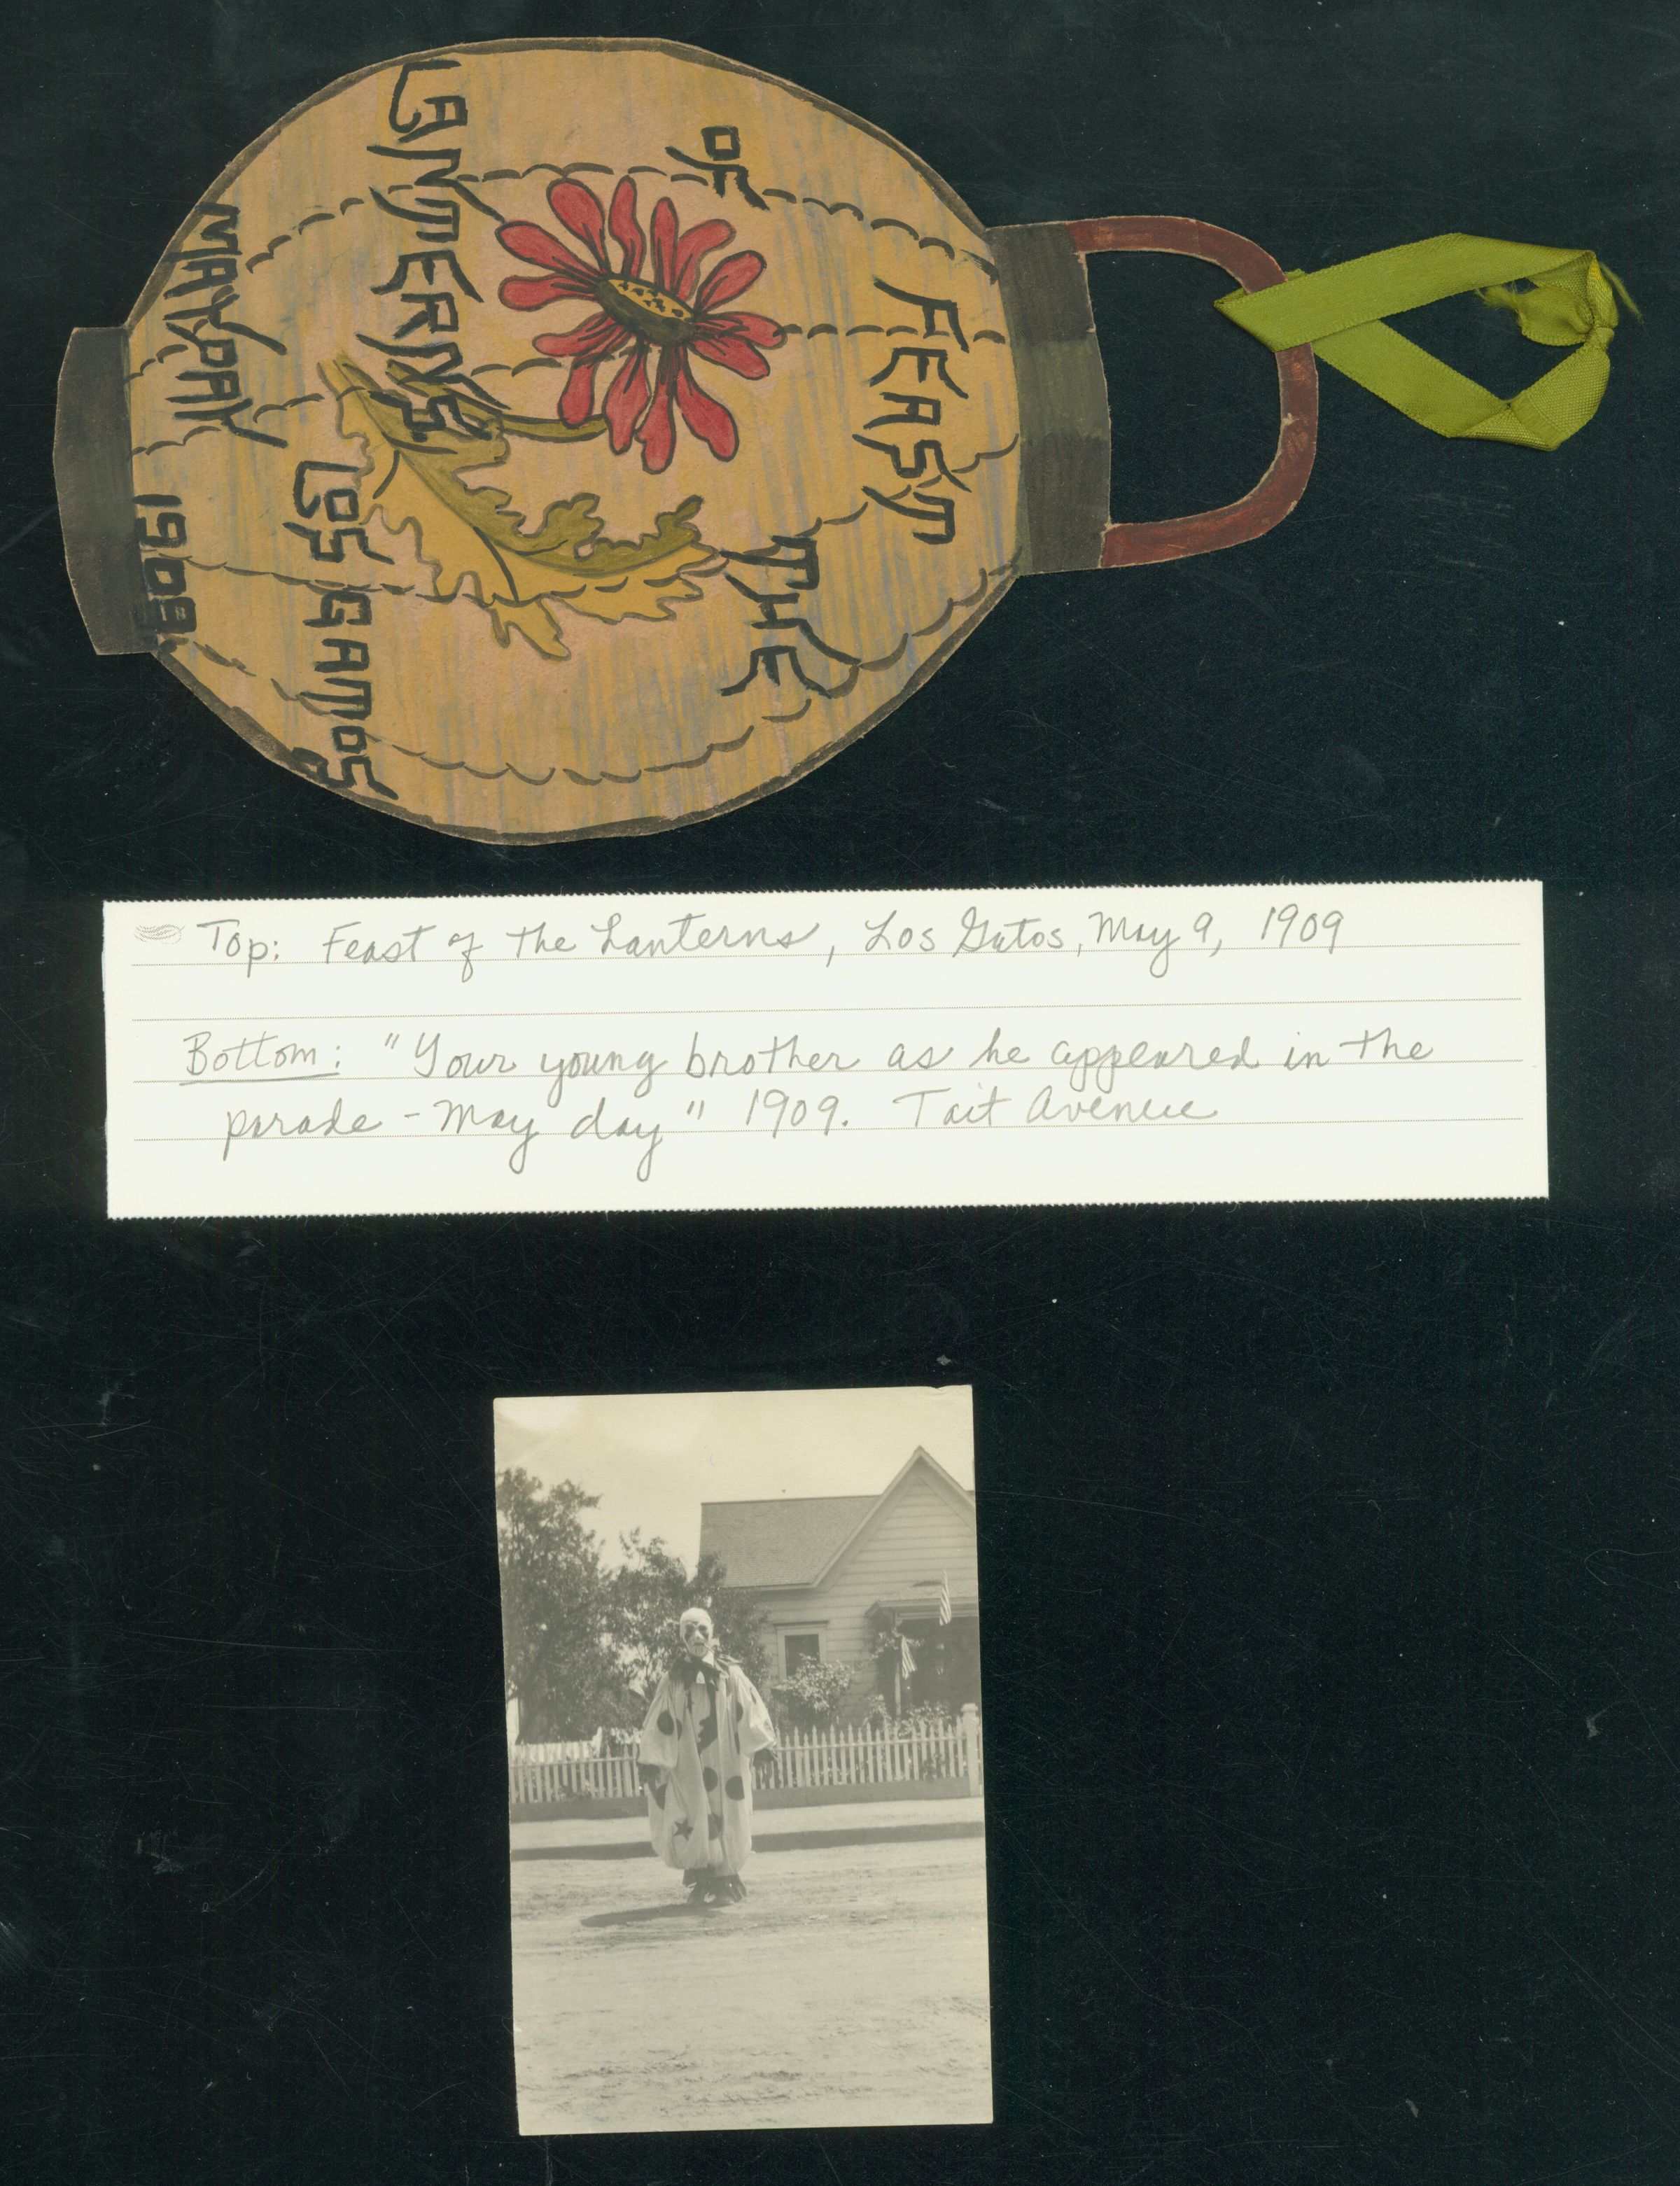 FEAST
OF
THE
LANTERNS
LOS GATOS
MAY DAY
1909.
Top: Feast of the Lanterns, Los Gatos, May 9, 1909
Bottom: "Your young brother as he appeared in the
parade - May day" 1909. Tait Avenue